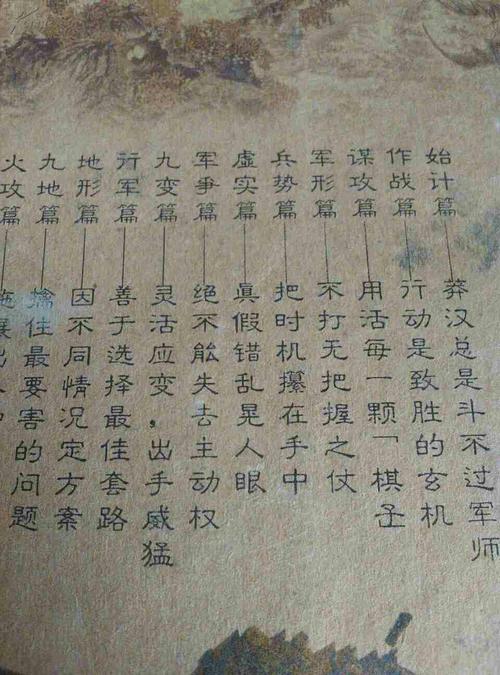 始计篇——莽汉总是斗不过军师
作战篇——行动是致胜的玄机
谋攻篇——用活每一颗「棋子
军形篇——不打无把握之仗
兵势篇——把时机攥在手中
虚实篇——真假错乱晃人眼
军争篇——绝不能失去主动权
九变篇——灵活应变，出手威猛
行军篇——善于选择最佳套路
地形篇——因不同情况定方案
九地篇——擒住最要害的问题
火攻篇——施展出